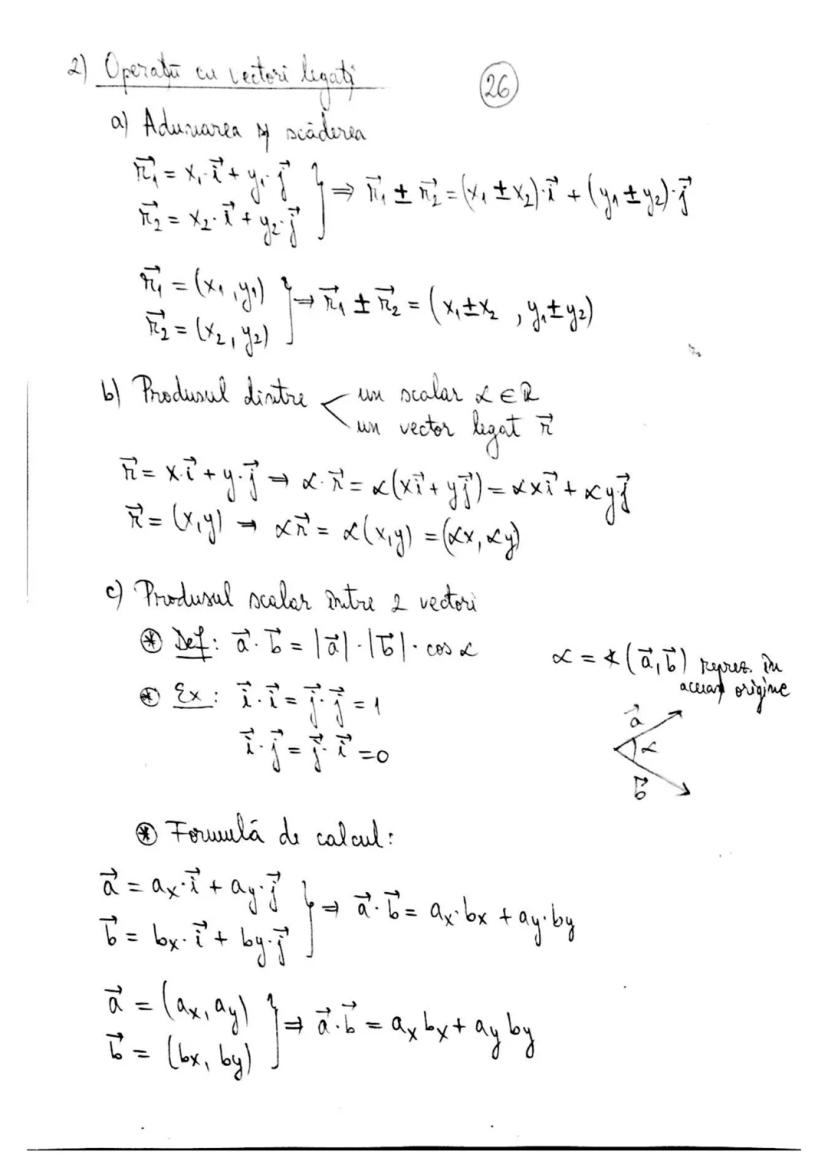 2) Operații cu vectori legați
26
a) Adunarea și scăderea
r⃗₁ = x₁·i⃗ + y₁·j⃗
r⃗₂ = x₂·i⃗ + y₂·j⃗ } ⇒ r⃗₁ ± r⃗₂ = (x₁ ± x₂)·i⃗ + (y₁ ± y₂)·j⃗
r⃗₁ = (x₁, y₁)
r⃗₂ = (x₂, y₂) } ⇒ r⃗₁ ± r⃗₂ = (x₁ ± x₂, y₁ ± y₂)
b) Produsul dintre < un scalar α ∈ ℝ
un vector legat r⃗
r⃗ = x·i⃗ + y·j⃗ ⇒ α·r⃗ = α(xi⃗ + yj⃗) = αxi⃗ + αyj⃗
r⃗ = (x,y) ⇒ αr⃗ = α(x,y) = (αx, αy)
c) Produsul scalar între 2 vectori
⊛ Def: a⃗·b⃗ = |a⃗|·|b⃗|·cos α
α = ∢(a⃗,b⃗) reprez. în
aceiași origine
⊛ Ex: i⃗·i⃗ = j⃗·j⃗ = 1
i⃗·j⃗ = j⃗·i⃗ = 0
a⃗
α
b⃗
⊛ Formulă de calcul:
a⃗ = aₓ·i⃗ + a_y·j⃗
b⃗ = bₓ·i⃗ + b_y·j⃗ } ⇒ a⃗·b⃗ = aₓ·bₓ + a_y·b_y
a⃗ = (aₓ, a_y)
b⃗ = (bₓ, b_y) } ⇒ a⃗·b⃗ = aₓbₓ + a_y b_y